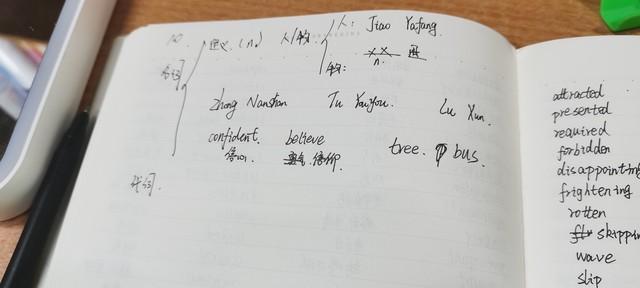 n. 定义 (n.) 人/物 人: Jiao Yafang.
名词 n.
物:
Zhong Nanshan Tu Youyou. Lu Xun.
confident. believe tree. bus.
信仰.
代词.
attracted
presented
required
forbidden
disappointing
frightening
rotten
skippin
wave
slip